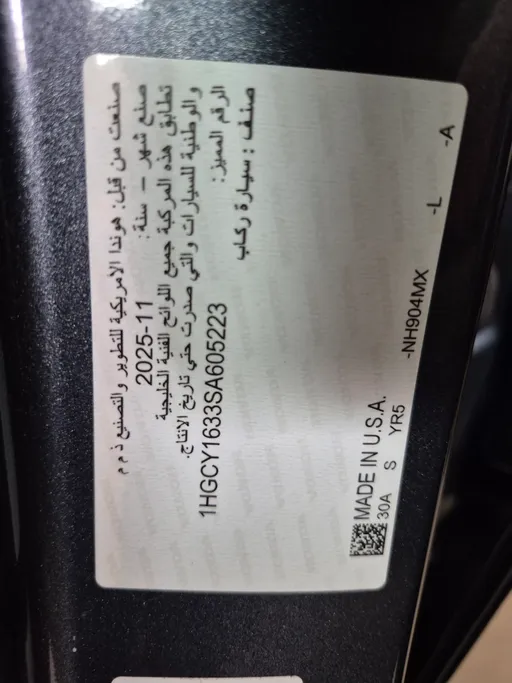 صنعت من قبل: هوندا الأمريكية للتطوير والتصنيع ذ م م
صنع شهر - سنة: 2025-11
تطابق هذه المركبة جميع اللوائح الفنية الخليجية
والوطنية للسيارات والتي صدرت حتى تاريخ الانتاج.
الرقم المميز: 1HGCY1633SA605223
صنف : سيارة ركاب
MADE IN U.S.A.
30A S YR5 -NH904MX -L -A